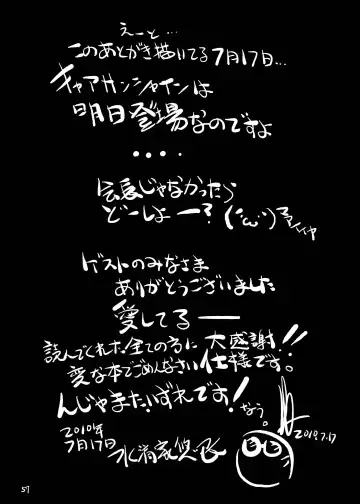 えーと…
このあとがき描いてる7月17日…
キャアサンシャインは
明日登場なのですよ
・・・・
会長じゃなかったら
どーしよー？(´･ω･`)
ゲストのみなさま
ありがとうございました
愛してるー
読んでくれた全ての方に大感謝!!
変な本でごめんなさい仕様です。
んじゃまたいずれです!
なう。
2010年
7月17日
2010.7.17
57